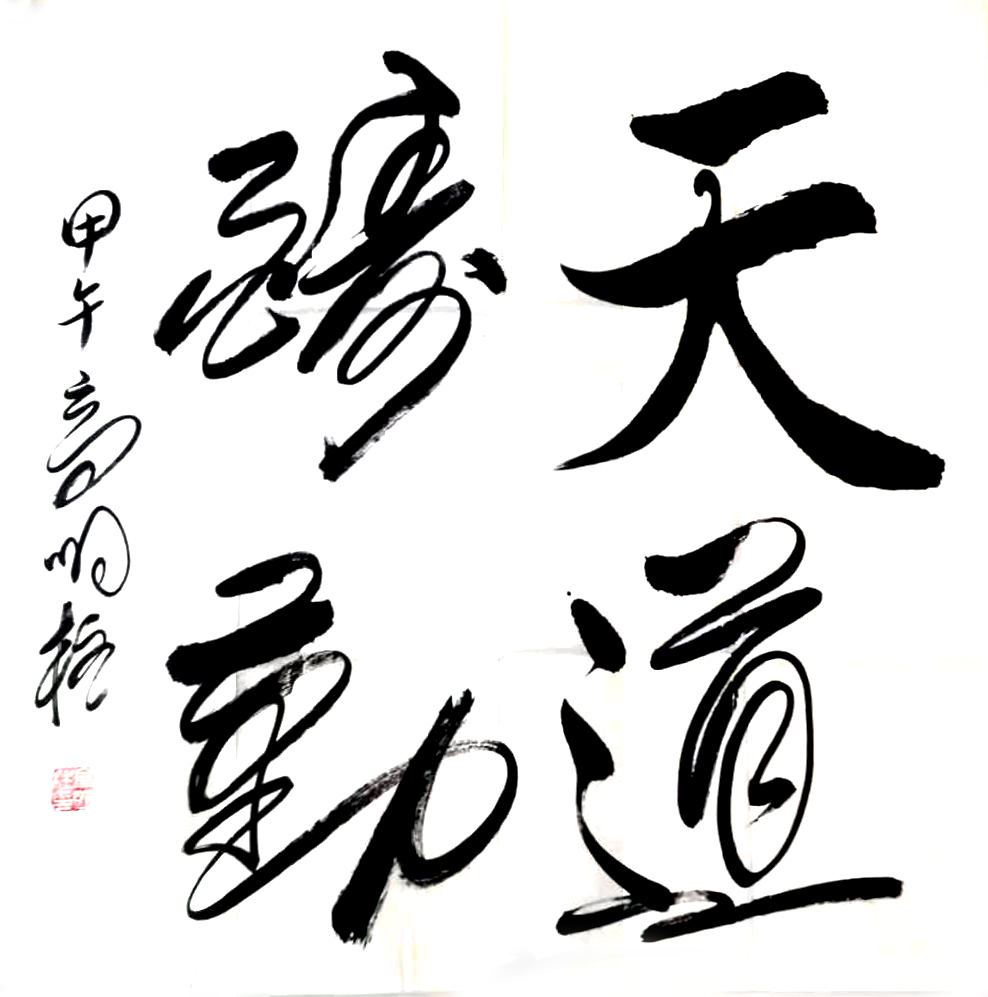 天道
酬勤
甲午高明